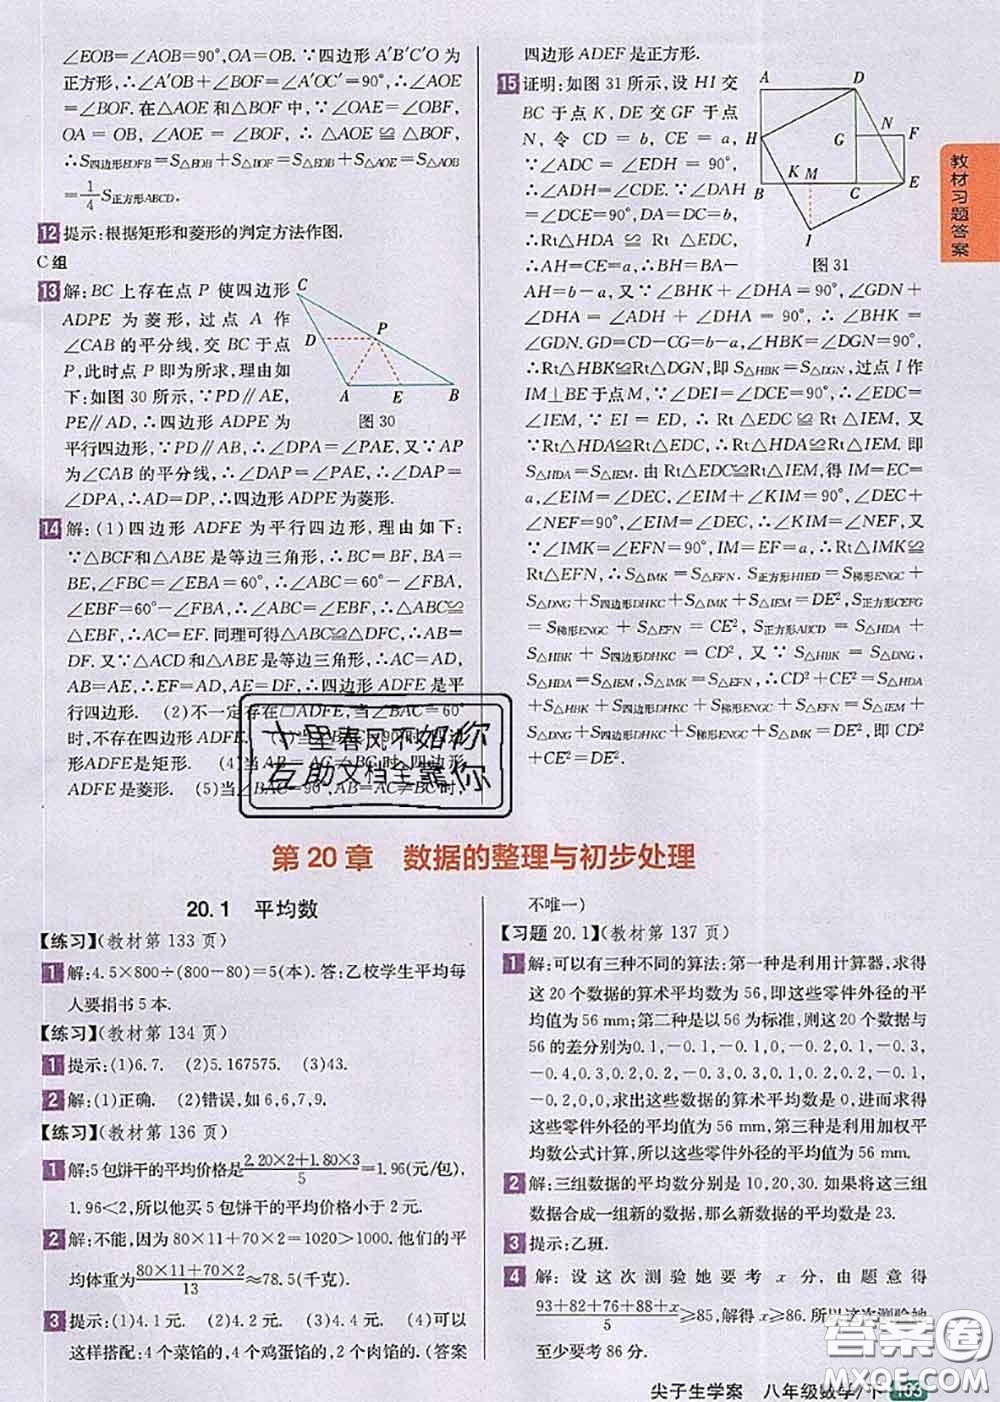 ∠EOB=∠AOB=90°,OA=OB.∵四边形A′B′C′O为
正方形,∴∠A′OB+∠BOF=∠A′OC′=90°,∴∠AOE
=∠BOF.在△AOE和△BOF中,∵∠OAE=∠OBF,
OA=OB,∠AOE=∠BOF,∴△AOE≌△BOF,
∴S四边形EOFB=S△EOB+S△BOF=S△EOB+S△AOE=S△AOB
=1/4 S正方形ABCD.
12 提示:根据矩形和菱形的判定方法作图.
C组
13 解:BC上存在点P使四边形
ADPE为菱形,过点A作
∠CAB的平分线,交BC于点
P,此时点P即为所求,理由如
下:如图30所示,∵PD∥AE,
PE∥AD,∴四边形ADPE为
平行四边形,∵PD∥AB,∴∠DPA=∠PAE,又∵AP
为∠CAB的平分线,∴∠DAP=∠PAE,∴∠DAP=
∠DPA,∴AD=DP,∴四边形ADPE为菱形.
C
D
P
A
E
B
图30
14 解:(1)四边形ADFE为平行四边形,理由如下:
∵△BCF和△ABE是等边三角形,∴BC=BF,BA=
BE,∠FBC=∠EBA=60°,∴∠ABC=60°-∠FBA,
∠EBF=60°-∠FBA,∴∠ABC=∠EBF,∴△ABC≌
△EBF,∴AC=EF.同理可得△ABC≌△DFC,∴AB=
DF.又∵△ACD和△ABE是等边三角形,∴AC=AD,
AB=AE,∴EF=AD,AE=DF,∴四边形ADFE是平
行四边形. (2)不一定存在□ADFE,当∠BAC=60°
时,不存在四边形ADFE. (3)当∠BAC=90°时,四边
形ADFE是矩形. (4)当AB=AC≠BC时,四边形
ADFE是菱形. (5)当∠BAC=90°,AB=AC≠BC时,
四边形ADEF是正方形.
15 证明:如图31所示,设HI交
BC于点K,DE交GF于点
N,令CD=b,CE=a,
∵∠ADC=∠EDH=90°,
∴∠ADH=∠CDE.∵∠DAH
=∠DCE=90°,DA=DC=b,
∴Rt△HDA≌Rt△EDC,
∴AH=CE=a,∴BH=BA-
AH=b-a,又∵∠BHK+∠DHA=90°,∠GDN+
∠DHA=∠ADH+∠DHA=90°,∴∠BHK=
∠GDN.GD=CD-CG=b-a,∠HBK=∠DGN=90°,
∴Rt△HBK≌Rt△DGN,即S△HBK=S△DGN,过点I作
IM⊥BE于点M,∵∠DEI=90°,∴∠DEC+∠IEM
=90°,∠DEC+∠EDC=90°,∴∠EDC=
∠IEM,∵EI=ED,∴Rt△EDC≌Rt△IEM,又
∵Rt△HDA≌Rt△EDC,∴Rt△HDA≌Rt△IEM.即
S△HDA=S△IEM.由Rt△EDC≌Rt△IEM,得IM=EC=
a,∠EIM=∠DEC,∠EIM+∠KIM=90°,∠DEC+
∠NEF=90°,∠EIM=∠DEC,∴∠KIM=∠NEF,又
∵∠IMK=∠EFN=90°,IM=EF=a,∴Rt△IMK≌
Rt△EFN,∴S△IMK=S△EFN.S正方形HIED=S梯形ENGC+
S△DNG+S四边形DHKC+S△IMK+S△IEM=DE²,S正方形CEFG
=S梯形ENGC+S△EFN=CE²,S正方形ABCD=S△HDA+
S△HBK+S四边形DHKC=CD²,又∵S△HBK=S△DNG,
S△HDA=S△IEM,S△IMK=S△EFN,∴CD²+CE²=S△HDA
+S△HBK+S四边形DHKC+S梯形ENGC+S△EFN=S梯形ENGC+
S△DNG+S四边形DHKC+S△IMK+S△IEM=DE²,即CD²
+CE²=DE².
A
D
N
H
G
F
K
M
B
C
E
I
图31
教材习题答案
十里春风不如你
互助文档全靠你
第20章 数据的整理与初步处理
20.1 平均数
【练习】(教材第133页)
1 解:4.5×800÷(800-80)=5(本).答:乙校学生平均每
人要捐书5本.
【练习】(教材第134页)
1 提示:(1)6.7. (2)5.167575. (3)43.
2 解:(1)正确. (2)错误,如6,6,7,9.
【练习】(教材第136页)
1 解:5包饼干的平均价格是(2.20×2+1.80×3)/5=1.96(元/包),
1.96<2,所以他买5包饼干的平均价格小于2元.
2 解:不能,因为80×11+70×2=1020>1000.他们的平
均体重为(80×11+70×2)/13≈78.5(千克).
3 提示:(1)4.1元. (2)4.2元. (3)4.4元. (4)可以
这样搭配:4个菜馅的,4个鸡蛋馅的,2个肉馅的.(答案
不唯一)
【习题20.1】(教材第137页)
1 解:可以有三种不同的算法:第一种是利用计算器,求得
这20个数据的算术平均数为56,即这些零件外径的平
均值为56 mm;第二种是以56为标准,则这20个数据与
56的差分别为0.1,-0.1,-0.1,0,-0.2,0.1,-0.3,
-0.4,0.3,0.2,0.2,-0.3,-0.3,0.1,0.2,0.2,-0.1,
-0.2,0,0,求出这些数据的算术平均数是0,进而求得
这些零件外径的平均值为56 mm,第三种是利用加权平
均数公式计算,所以这些零件外径的平均值为56 mm.
2 解:三组数据的平均数分别是10,20,30.如果将这三组
数据合成一组新的数据,那么新数据的平均数是23.
3 提示:乙班.
4 解:设这次测验她要考x分,由题意得
(93+82+76+88+x)/5≥85,解得x≥86.所以这次测验她
至少要考86分.
答案圈
MXQE.COM
尖子生学案 八年级数学/下 163